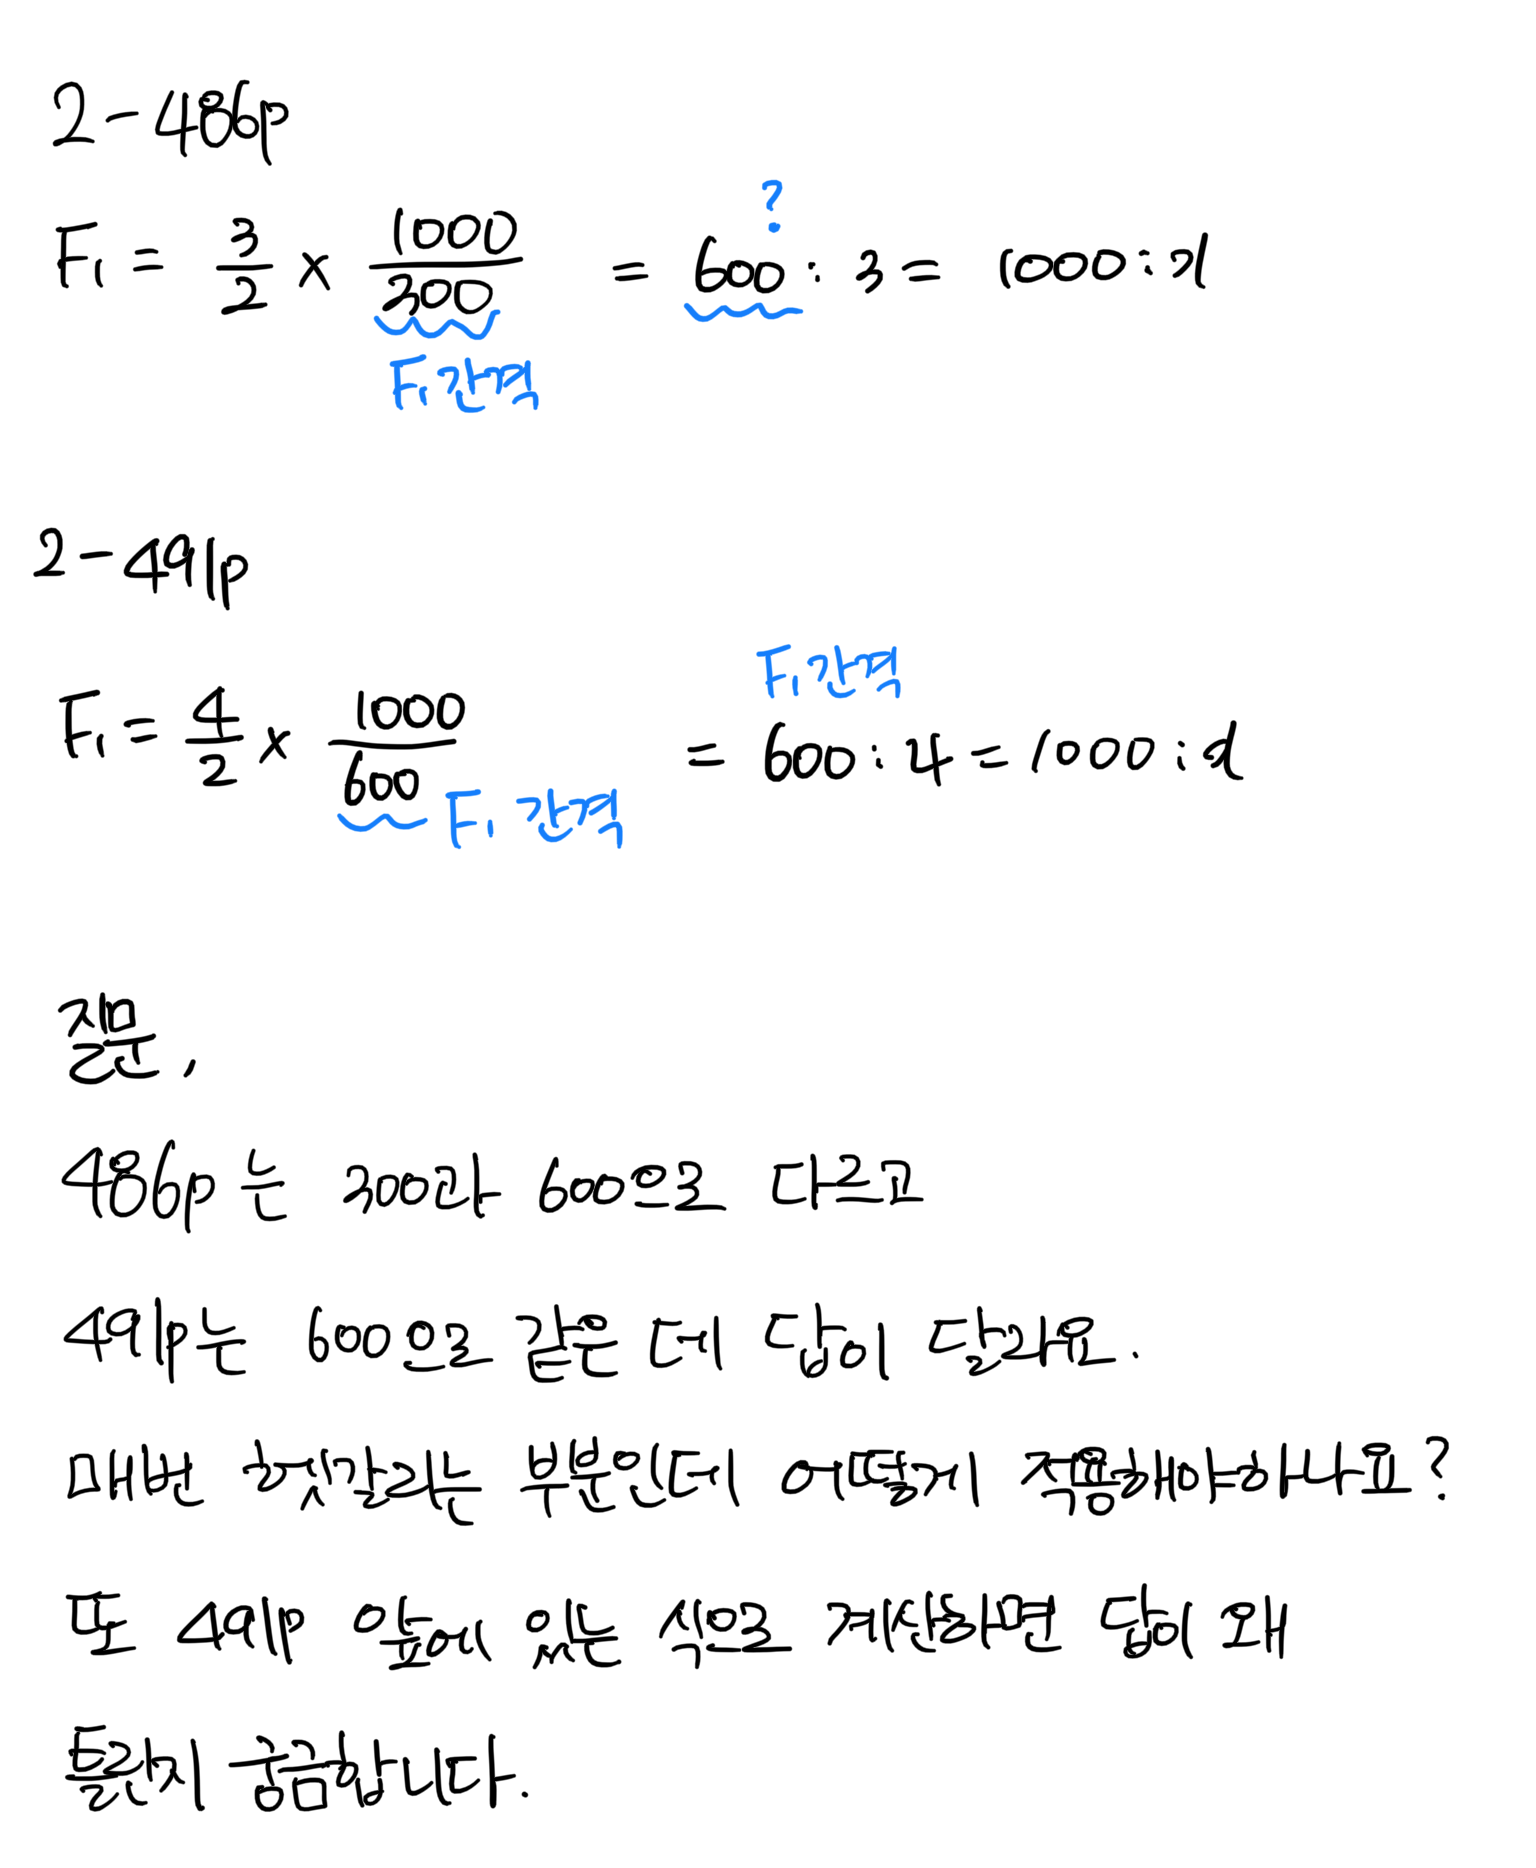 2-486p
?
F₁ = 3/2 × 1000/300 = 600 : 3 = 1000 : x
F₁간격
2-491p
F₁간격
F₁ = 4/2 × 1000/600 = 600 : 4 = 1000 : x
F₁ 간격
질문,
486p 는 300과 600으로 다르고
491p는 600으로 같은 데 답이 달라요.
매번 헷갈리는 부분인데 어떻게 적용해야하나요?
또 491p 앞에 있는 식으로 계산하면 답이 왜
틀린지 궁금합니다.